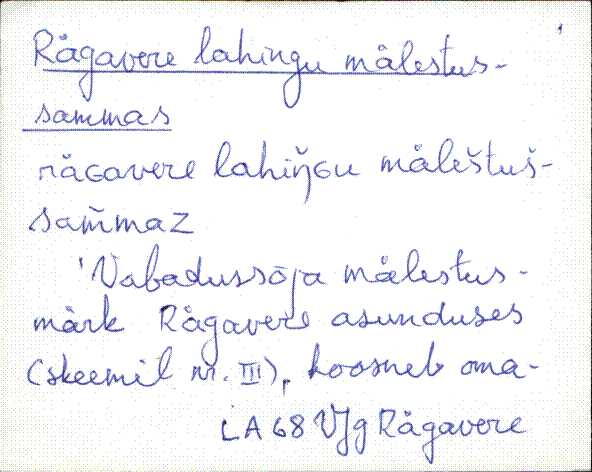 Rågavere lahingu målestus-
sammas
råGavere lahiŋ̆Gu måleštuš-
sam̆maz
'Vabadussõja målestus-
mårk Rågavere asunduses
(skeemil nr. III), koosneb oma-
LA 68 VJg Rågavere